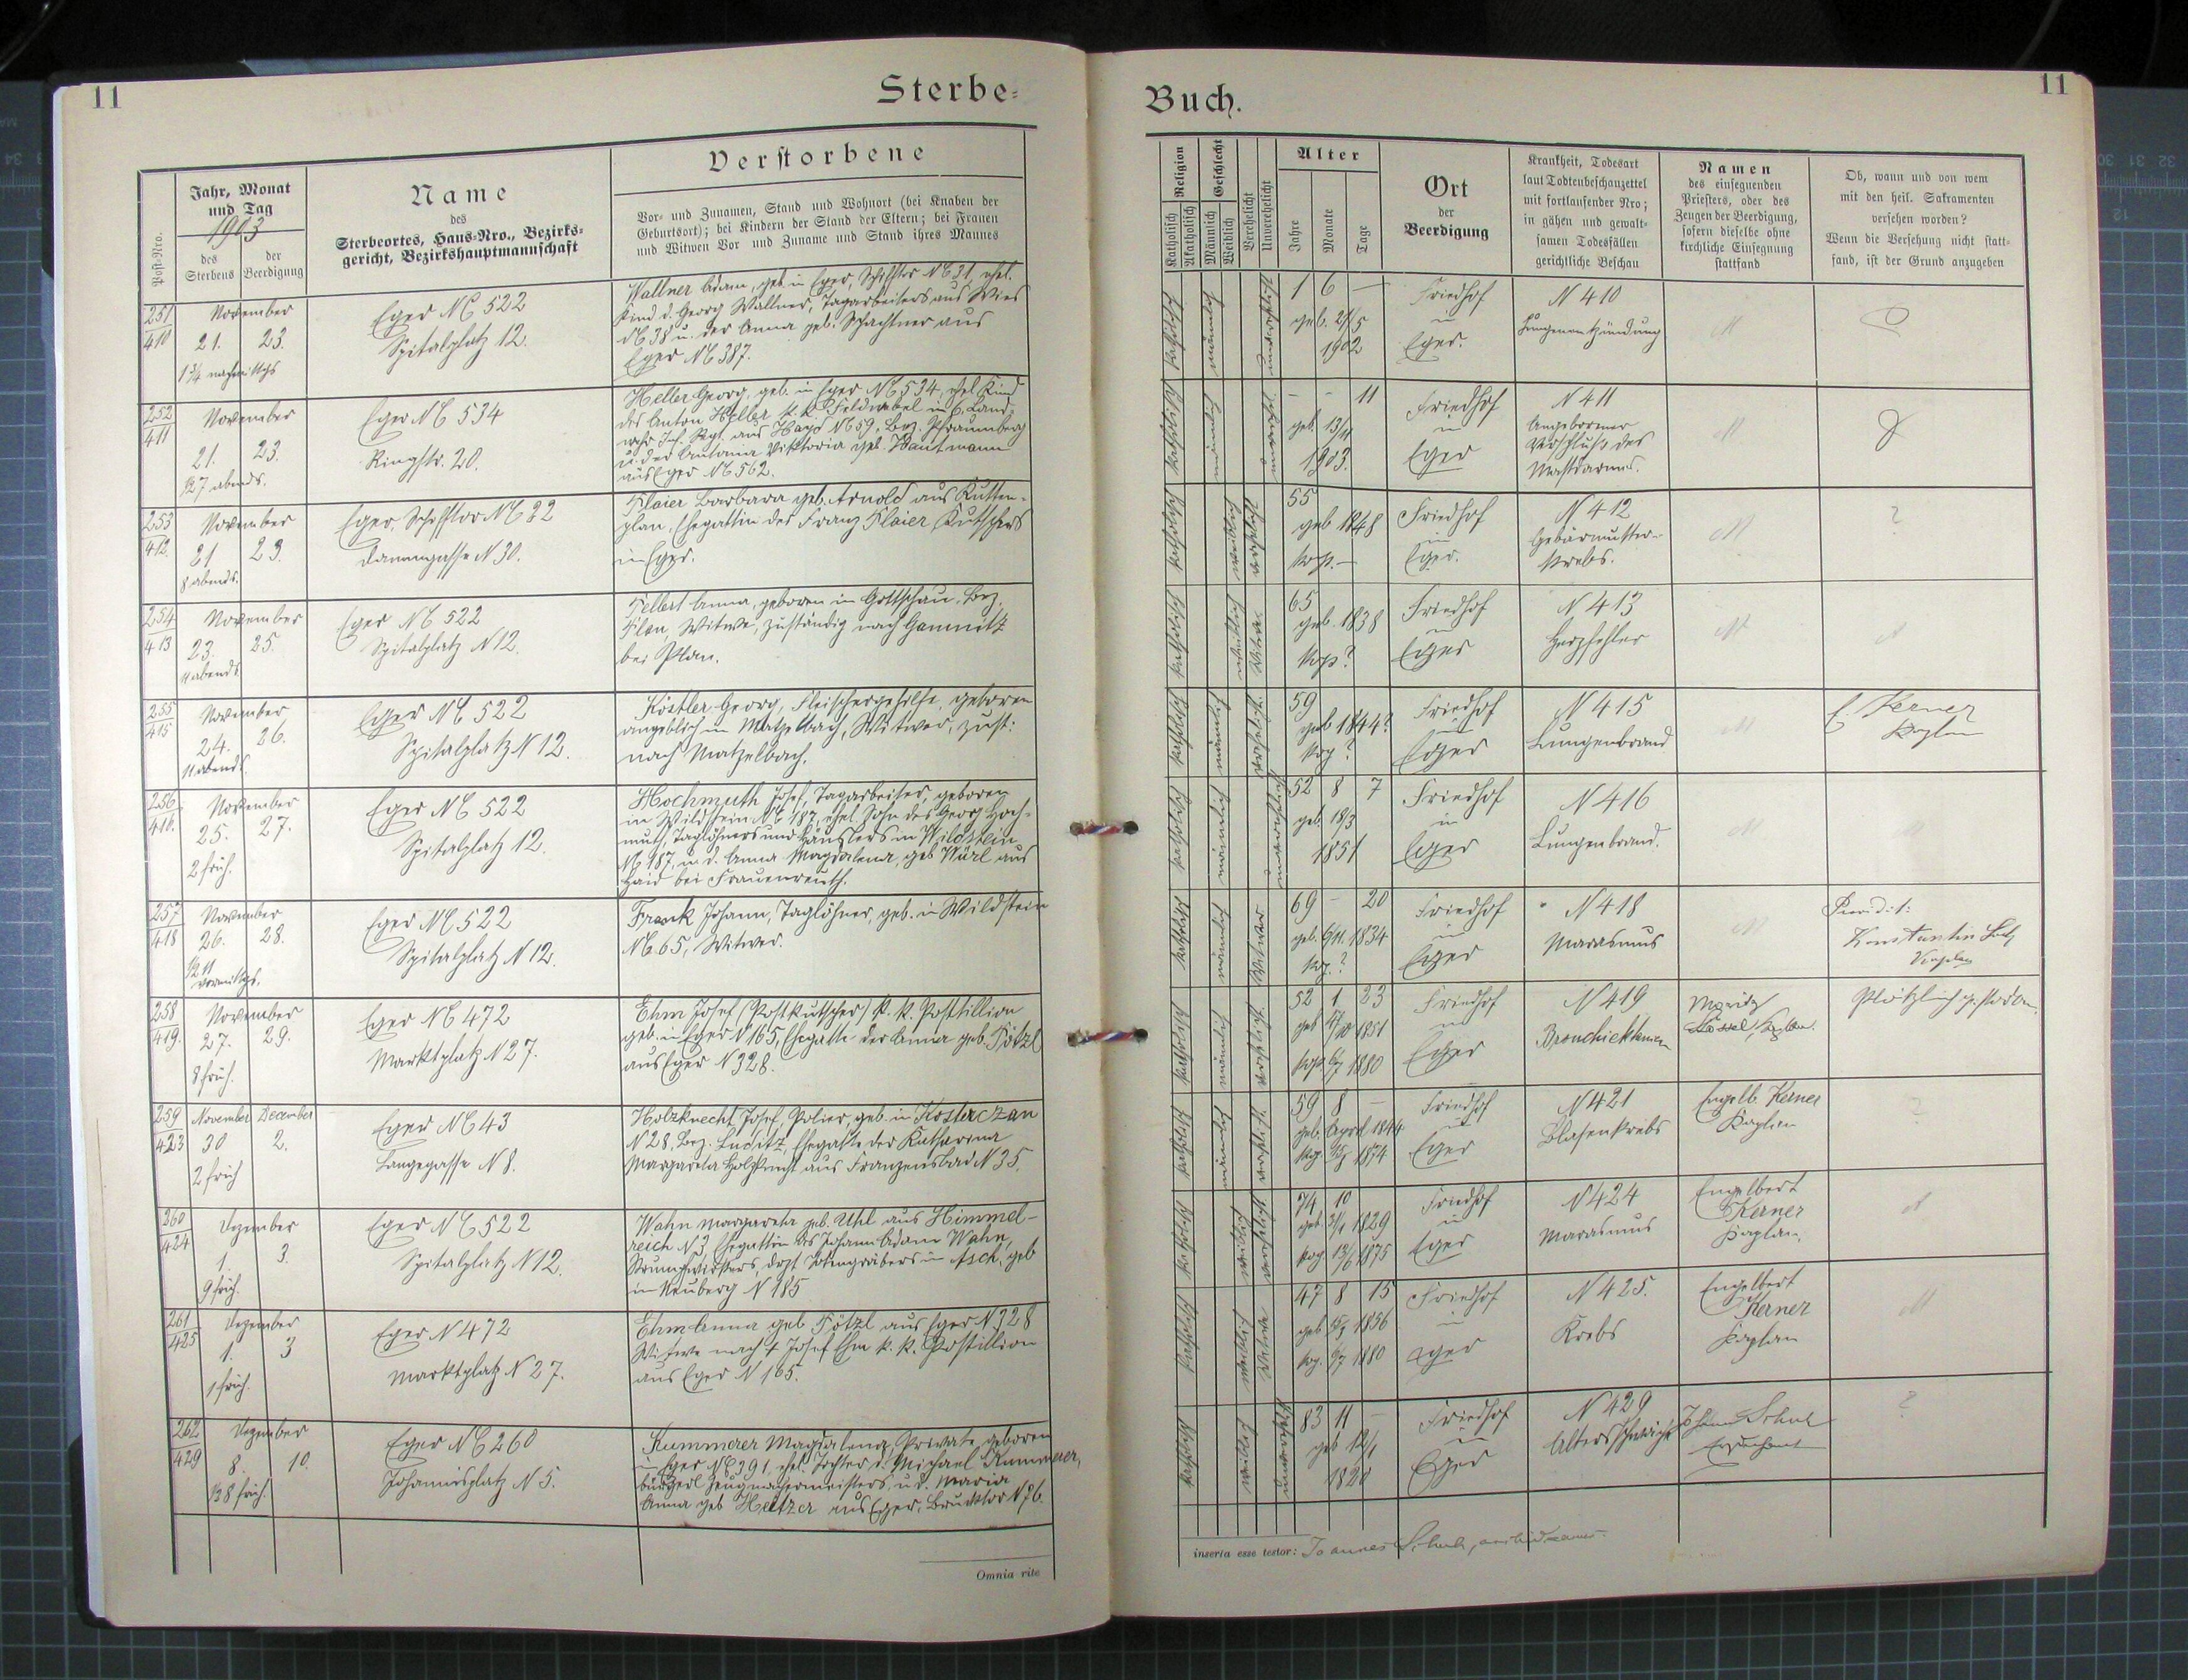 11
Sterbe-
Jahr, Monat
und Tag
1903
Name
des
Sterbeortes, Haus-Nro., Bezirks-
gericht, Bezirkshauptmannschaft
Verstorbene
Vor- und Zunamen, Stand und Wohnort (bei Knaben der
Geburtsort); bei Kindern der Stand der Eltern; bei Frauen
und Witwen Vor und Zuname und Stand ihres Mannes
Post-Nro.
des
Sterbens
der
Beerdigung
251
410
November
21. 23.
1 3/4 nachmittgs
Eger NC 522
Spitalplatz 12.
Wallner Adam, geb. in Eger, Schifftor NC 31, ehel.
Kind d. Georg Wallner, Tagarbeiters aus Wies
NC 38 u. der Anna geb. Schachtner aus
Eger NC 387.
252
411
November
21. 23.
1/2 7 abends.
Eger NC 534
Ringstr. 20.
Heller Georg, geb. in Eger NC 534, ehel. Kind
des Anton Heller k. k. Feldwebel im 6. Land-
wehr Inf. Rgt. aus Hayd NC 59, Bez. Pfraumberg
u. der Antonia Viktoria geb. Hautmann
aus Eger NC 562.
253
412
November
21 23.
8 abends.
Eger, Schifftor NC 32
Dammgasse N 30.
Plaier Barbara geb. Arnold aus Kutten-
plan, Ehegattin des Franz Plaier Kutschers
in Eger.
254
413
November
23. 25.
11 abends
Eger NC 522
Spitalplatz N 12.
Tellert Anna, geboren in Gottschau, Bez.
Plan, Witwe, zuständig nach Gamnitz
bei Plan.
255
415
November
24. 26.
11 abends.
Eger NC 522
Spitalplatz N 12.
Köstler Georg, Fleischergehilfe, geboren
angeblich in Matzelbach, Witwer, zust:
nach Matzelbach.
256
416.
November
25. 27.
2 früh.
Eger NC 522
Spitalplatz 12.
Hochmuth Josef, Tagarbeiter, geboren
in Wildstein NC 187, ehel. Sohn des Georg Hoch-
muth, Taglöhners und Häuslers in Wildstein
NC 187, u. d. Anna Magdalena, geb. Würl aus
Haid bei Frauenreuth.
257
418
November
26. 28.
1/2 11
vormittgs.
Eger NC 522
Spitalplatz N 12.
Frank Johann, Taglöhner, geb. in Wildstein
NC 65, Witwer.
258
419.
November
27. 29.
8 früh.
Eger NC 472
Marktplatz N 27.
Ehm Josef (Postkutscher) k. k. Postillion
geb. in Eger N 165, Ehegatte der Anna geb. Fötzl
aus Eger N 328.
259
423
November December
30 2.
2 früh
Eger NC 43
Langegasse N 8.
Holzknecht Josef, Polier, geb. in Kosterczan
N 28, Bez. Luditz, Ehegatte der Katharina
Margareta Holzknecht aus Franzensbad N 35.
260
424
Dezember
1. 3.
9 früh.
Eger NC 522
Spitalplatz N 12.
Wahn Margareta geb. Uhl aus Himmel-
reich N 3, Ehegattin des Johann Adam Wahn,
Strumpfwirkers, dost Totengräbers in Asch, geb
in Neuberg N 185
261
425
Dezember
1. 3
1 früh.
Eger N 472
Marktplatz N 27.
Ehm Anna geb Fötzl aus Eger N 328
Witwe nach † Josef Ehm k. k. Postillion
aus Eger N 165.
262
429
Dezember
8. 10
1/2 8 früh.
Eger NC 260
Johannisplatz N 5.
Kummerer Magdalena, Private, geboren
in Eger NC 391, ehel. Tochter d. Michael Kummerer,
bürgerl Zeugmachermeisters, u. d. Maria
Anna geb Heltzer aus Eger, Brucktor N 76.
Omnia rite
Buch.
11
Religion
Katholisch
Akatholisch
Geschlecht
Männlich
Weiblich
Verehelicht
Unverehelicht
Alter
Jahre
Monate
Tage
Ort
der
Beerdigung
Krankheit, Todesart
laut Todtenbeschauzettel
mit fortlaufender Nro;
in gähen und gewalt-
samen Todesfällen
gerichtliche Beschau
Namen
des einsegnenden
Priesters, oder des
Zeugen der Beerdigung,
sofern dieselbe ohne
kirchliche Einsegnung
stattfand
Ob, wann und von wem
mit den heil. Sakramenten
versehen worden?
Wenn die Versehung nicht statt-
fand, ist der Grund anzugeben
katholisch männlich unverehelicht
1 6 —
geb. 21/5
1902
Friedhof
in
Eger.
N 410
Lungenentzündung
katholisch männlich unverehel.
- - 11
geb. 13/11
1903.
Friedhof
in
Eger
N 411
Angeborner
Verschluss des
Mastdarmes.
katholisch weiblich verehelicht
55
geb 1848
kop. —
Friedhof
in
Eger.
N 412
Gebärmutter-
krebs.
?
katholisch weiblich Witwe.
65
geb. 1838
kop?
Friedhof
in
Eger
N 413
Herzfehler
katholisch männlich verehelicht.
59
geb 1844?
kop?
Friedhof
in
Eger
N 415
Lungenbrand
E. Kerner
Kaplan
katholisch männlich unverehelicht
52 8 7
geb. 18/3
1851
Friedhof
in
Eger
N 416
Lungenbrand.
katholisch männlich Witwer
69 - 20
geb. 6/11. 1834
kop.?
Friedhof
in
Eger
N 418
Marasmus
Providit:
Konstantin
Kaplan
katholisch männlich verehelicht.
52 1 23
1851
1880
Friedhof
in
Eger
N 419
Moritz
Kaplan.
Plötzlich gestorben.
katholisch männlich verehelicht.
59 8 —
geb. April 1844
1874
Friedhof
in
Eger
N 421
Blasenkrebs
Engelb. Kerner
Kaplan
?
katholisch weiblich verehelicht
74 10
1829
1875
Friedhof
in
Eger
N 424
Marasmus
Engelbert
Kerner
Kaplan.
katholisch weiblich Witwe
47 8 15
1856
1880
Friedhof
in
Eger
N 425.
Krebs
Engelbert
Kerner
Kaplan
katholisch weiblich unverehelicht
83 11 —
geb 12/1
1820
Friedhof
in
Eger
N 429
Altersschwäche
Johann Schuh
Erzdechant
?
inserta esse testor: Joannes Schuh, archidecanus.